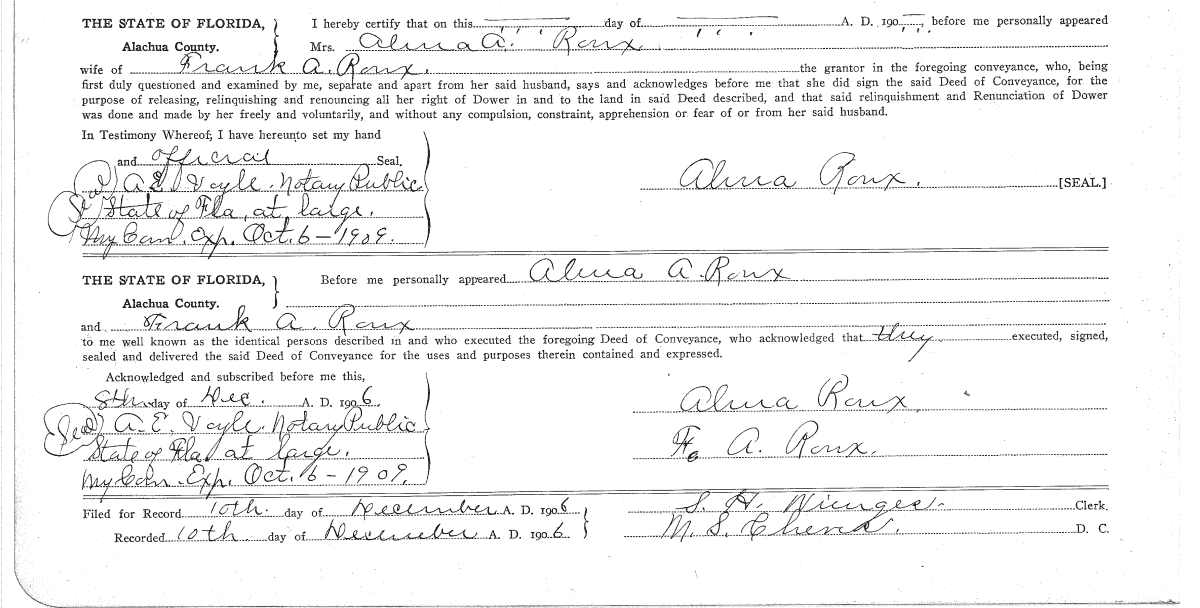 THE STATE OF FLORIDA, I hereby certify that on this day of A. D. 190 , before me personally appeared
Alachua County. Mrs. Alma A. Roux.
wife of Frank A. Roux. the grantor in the foregoing conveyance, who, being
first duly questioned and examined by me, separate and apart from her said husband, says and acknowledges before me that she did sign the said Deed of Conveyance, for the
purpose of releasing, relinquishing and renouncing all her right of Dower in and to the land in said Deed described, and that said relinquishment and Renunciation of Dower
was done and made by her freely and voluntarily, and without any compulsion, constraint, apprehension or fear of or from her said husband.
In Testimony Whereof, I have hereunto set my hand
and official Seal.
A E Voyle. Notary Public
State of Fla, at large.
My Com. Exp. Oct. 6-1909.
Alma Roux. [SEAL.]
THE STATE OF FLORIDA, Before me personally appeared Alma A. Roux
Alachua County.
and Frank A. Roux
to me well known as the identical persons described in and who executed the foregoing Deed of Conveyance, who acknowledged that they executed, signed,
sealed and delivered the said Deed of Conveyance for the uses and purposes therein contained and expressed.
Acknowledged and subscribed before me this,
8th day of Dec. A. D. 1906.
(Seal) A. E. Voyle. Notary Public
State of Fla, at large.
My Com. Exp. Oct. 6-1909.
Alma Roux.
F. A. Roux.
Filed for Record 10th. day of December A. D. 1906 S. H. Wienges. Clerk.
Recorded 10th day of December A. D. 1906 M. S. D. C.